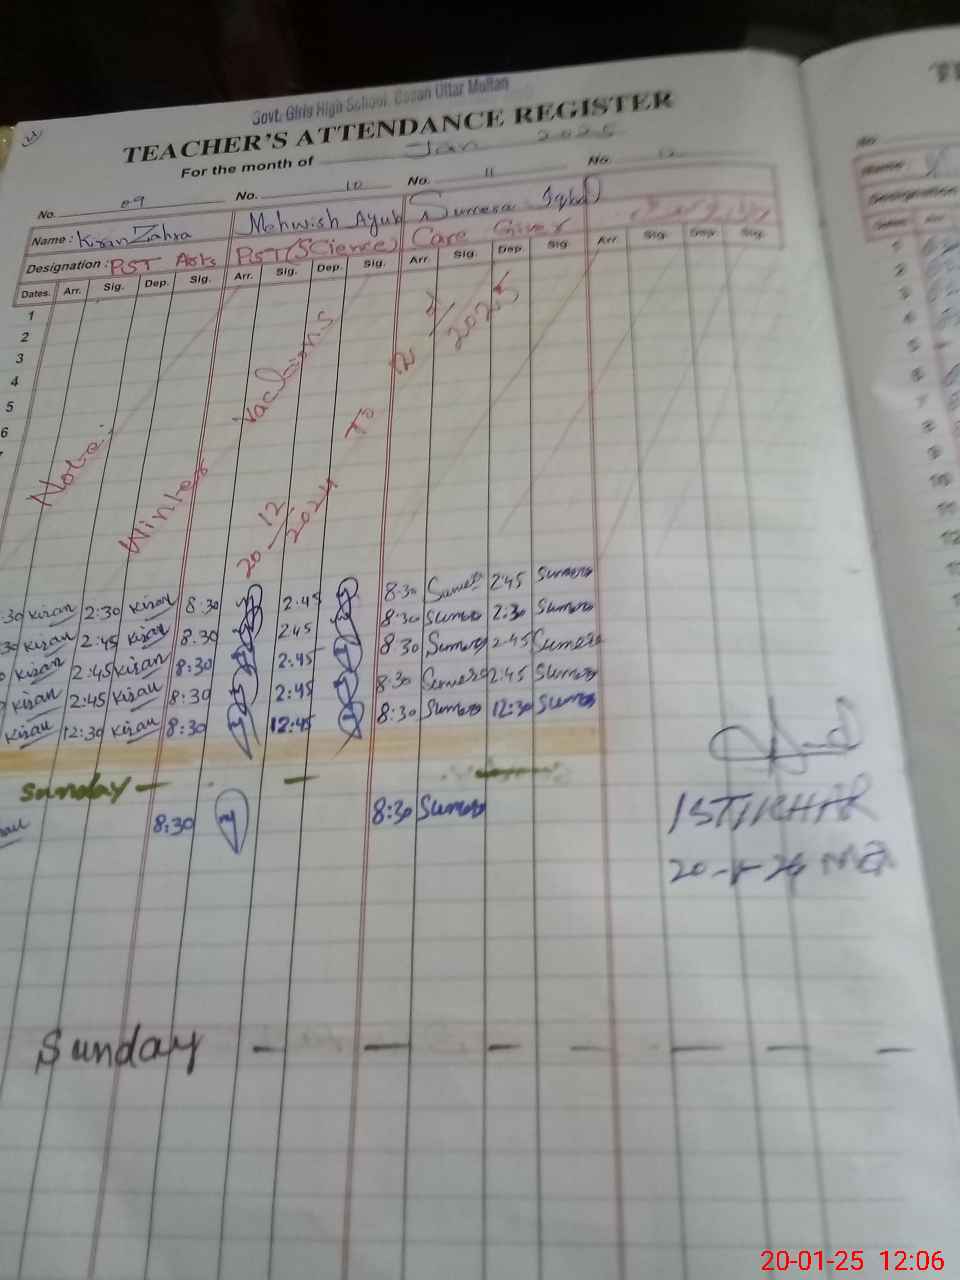 Govt. Girls High School. Bosan Uttar Multan
TEACHER'S ATTENDANCE REGISTER
For the month of Jan 2025
No. 09 No. 10 No. 11 No. 12
Name: Kiran Zahra Mehwish Ayub Sumera Iqbal
Designation: PST Arts PST (Science) Care Giver
Dates. Arr. Sig. Dep. Sig. Arr. Sig. Dep. Sig. Arr. Sig. Dep. Sig. Arr. Sig. Dep. Sig.
1
2
3
4
5
6
Note:
Winter Vacations
20-12/2024 To 12-1/2025
:30 Kiran 2:30 Kiran 8:30 2:45 8:30 Sumera 2:45 Sumera
:30 Kiran 2:45 Kiran 8:30 2:45 8:30 Sumera 2:30 Sumera
Kiran 2:45 Kiran 8:30 2:45 8:30 Sumera 2:45 Sumera
Kiran 2:45 Kiran 8:30 2:45 8:30 Sumera 2:45 Sumera
Kiran 12:30 Kiran 8:30 12:45 8:30 Sumera 12:30 Sumera
Sunday - -
8:30 8:30 Sumera
ISTIKHAR
20-1-25 MEA
Sunday - - - - - - -
No.
1
2
3
4
5
6
7
8
9
10
11
12
13
20-01-25 12:06